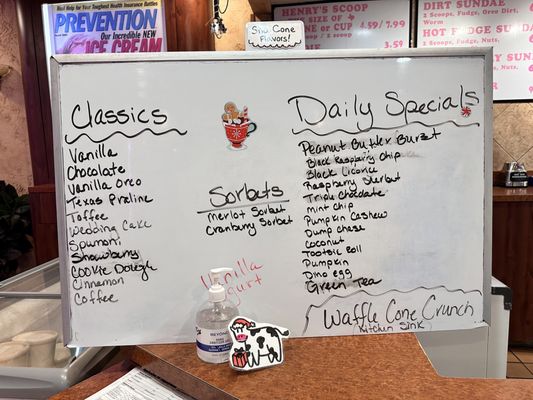 Help your Heart Have Insurance
PREVENTION
Our Incredible New
ICE CREAM
Snu Cone
Flavors!
HENRY'S SCOOP
SIZE OF
ONE OR CUP 4.59 / 7.99
SCOOP 3.95
DIRT SUNDAE
2 Scoops, Fudge, Oreo Dirt,
Worm
HOT FUDGE SUNDAE
2 Scoops, Fudge, Nuts,
Classics
Vanilla
Chocolate
Vanilla Oreo
Texas Praline
Toffee
Wedding Cake
Spumoni
Strawberry
Cookie Dough
Cinnamon
Coffee
Sorbets
Merlot Sorbet
Cranberry Sorbet
Vanilla
Yogurt
Daily Specials
Peanut Butter Burst
Black Raspberry Chip
Black Licorice
Raspberry Sherbet
Triple Chocolate
Mint Chip
Pumpkin Cashew
Dump Chase
Coconut
Tootsie Roll
Pumpkin
Dino egg
Green Tea
Waffle Cone Crunch
Kitchin Sink